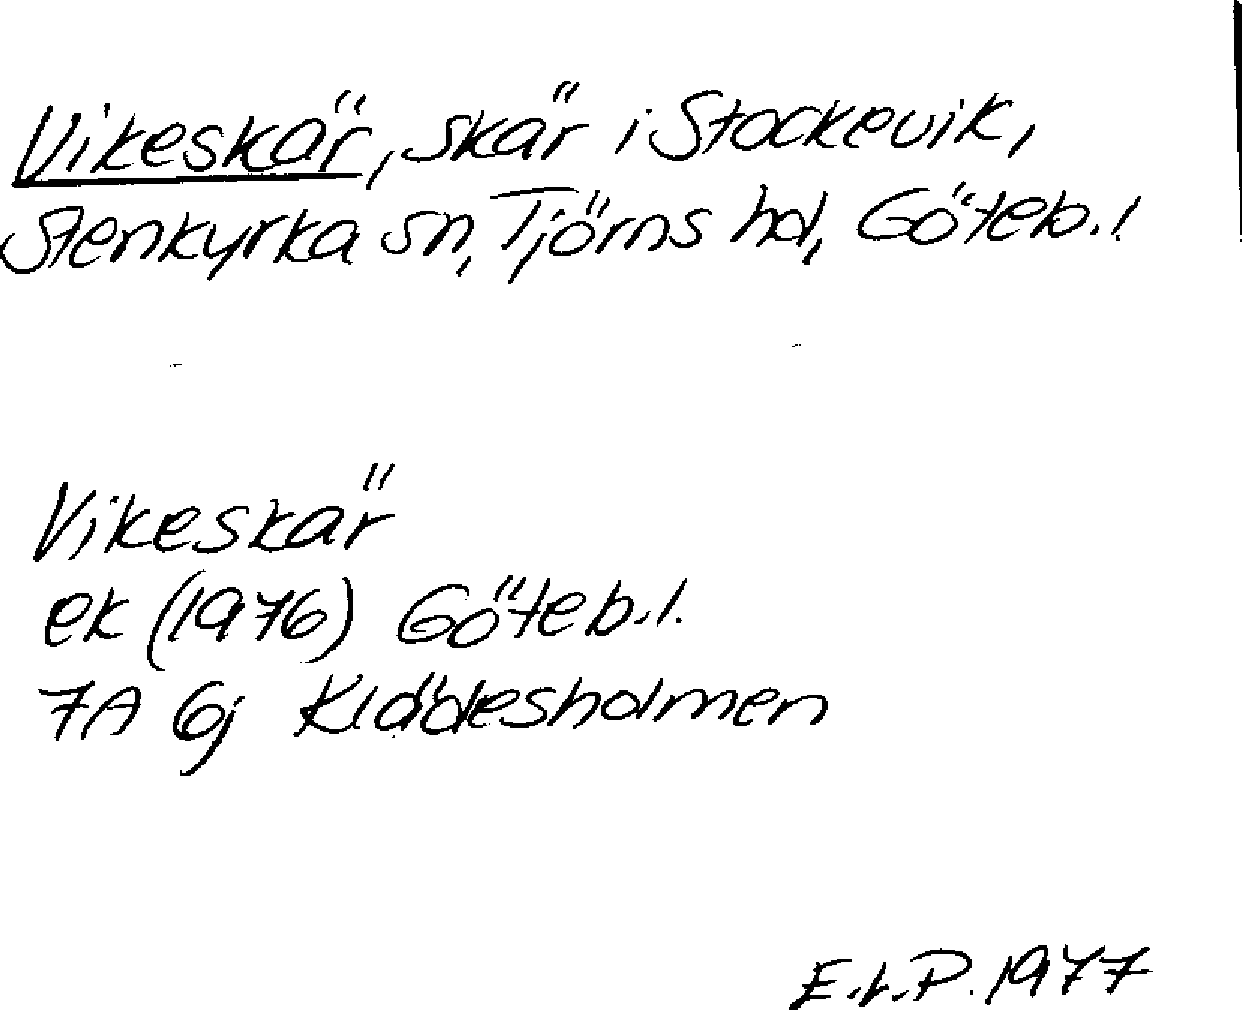 Vikeskär, skär i Stockevik,
Stenkyrka sn, Tjörns hd, Göteb.l
Vikeskär
ek (1976) Göteb.l.
7A 6j Klädesholmen
E.L.P. 1977